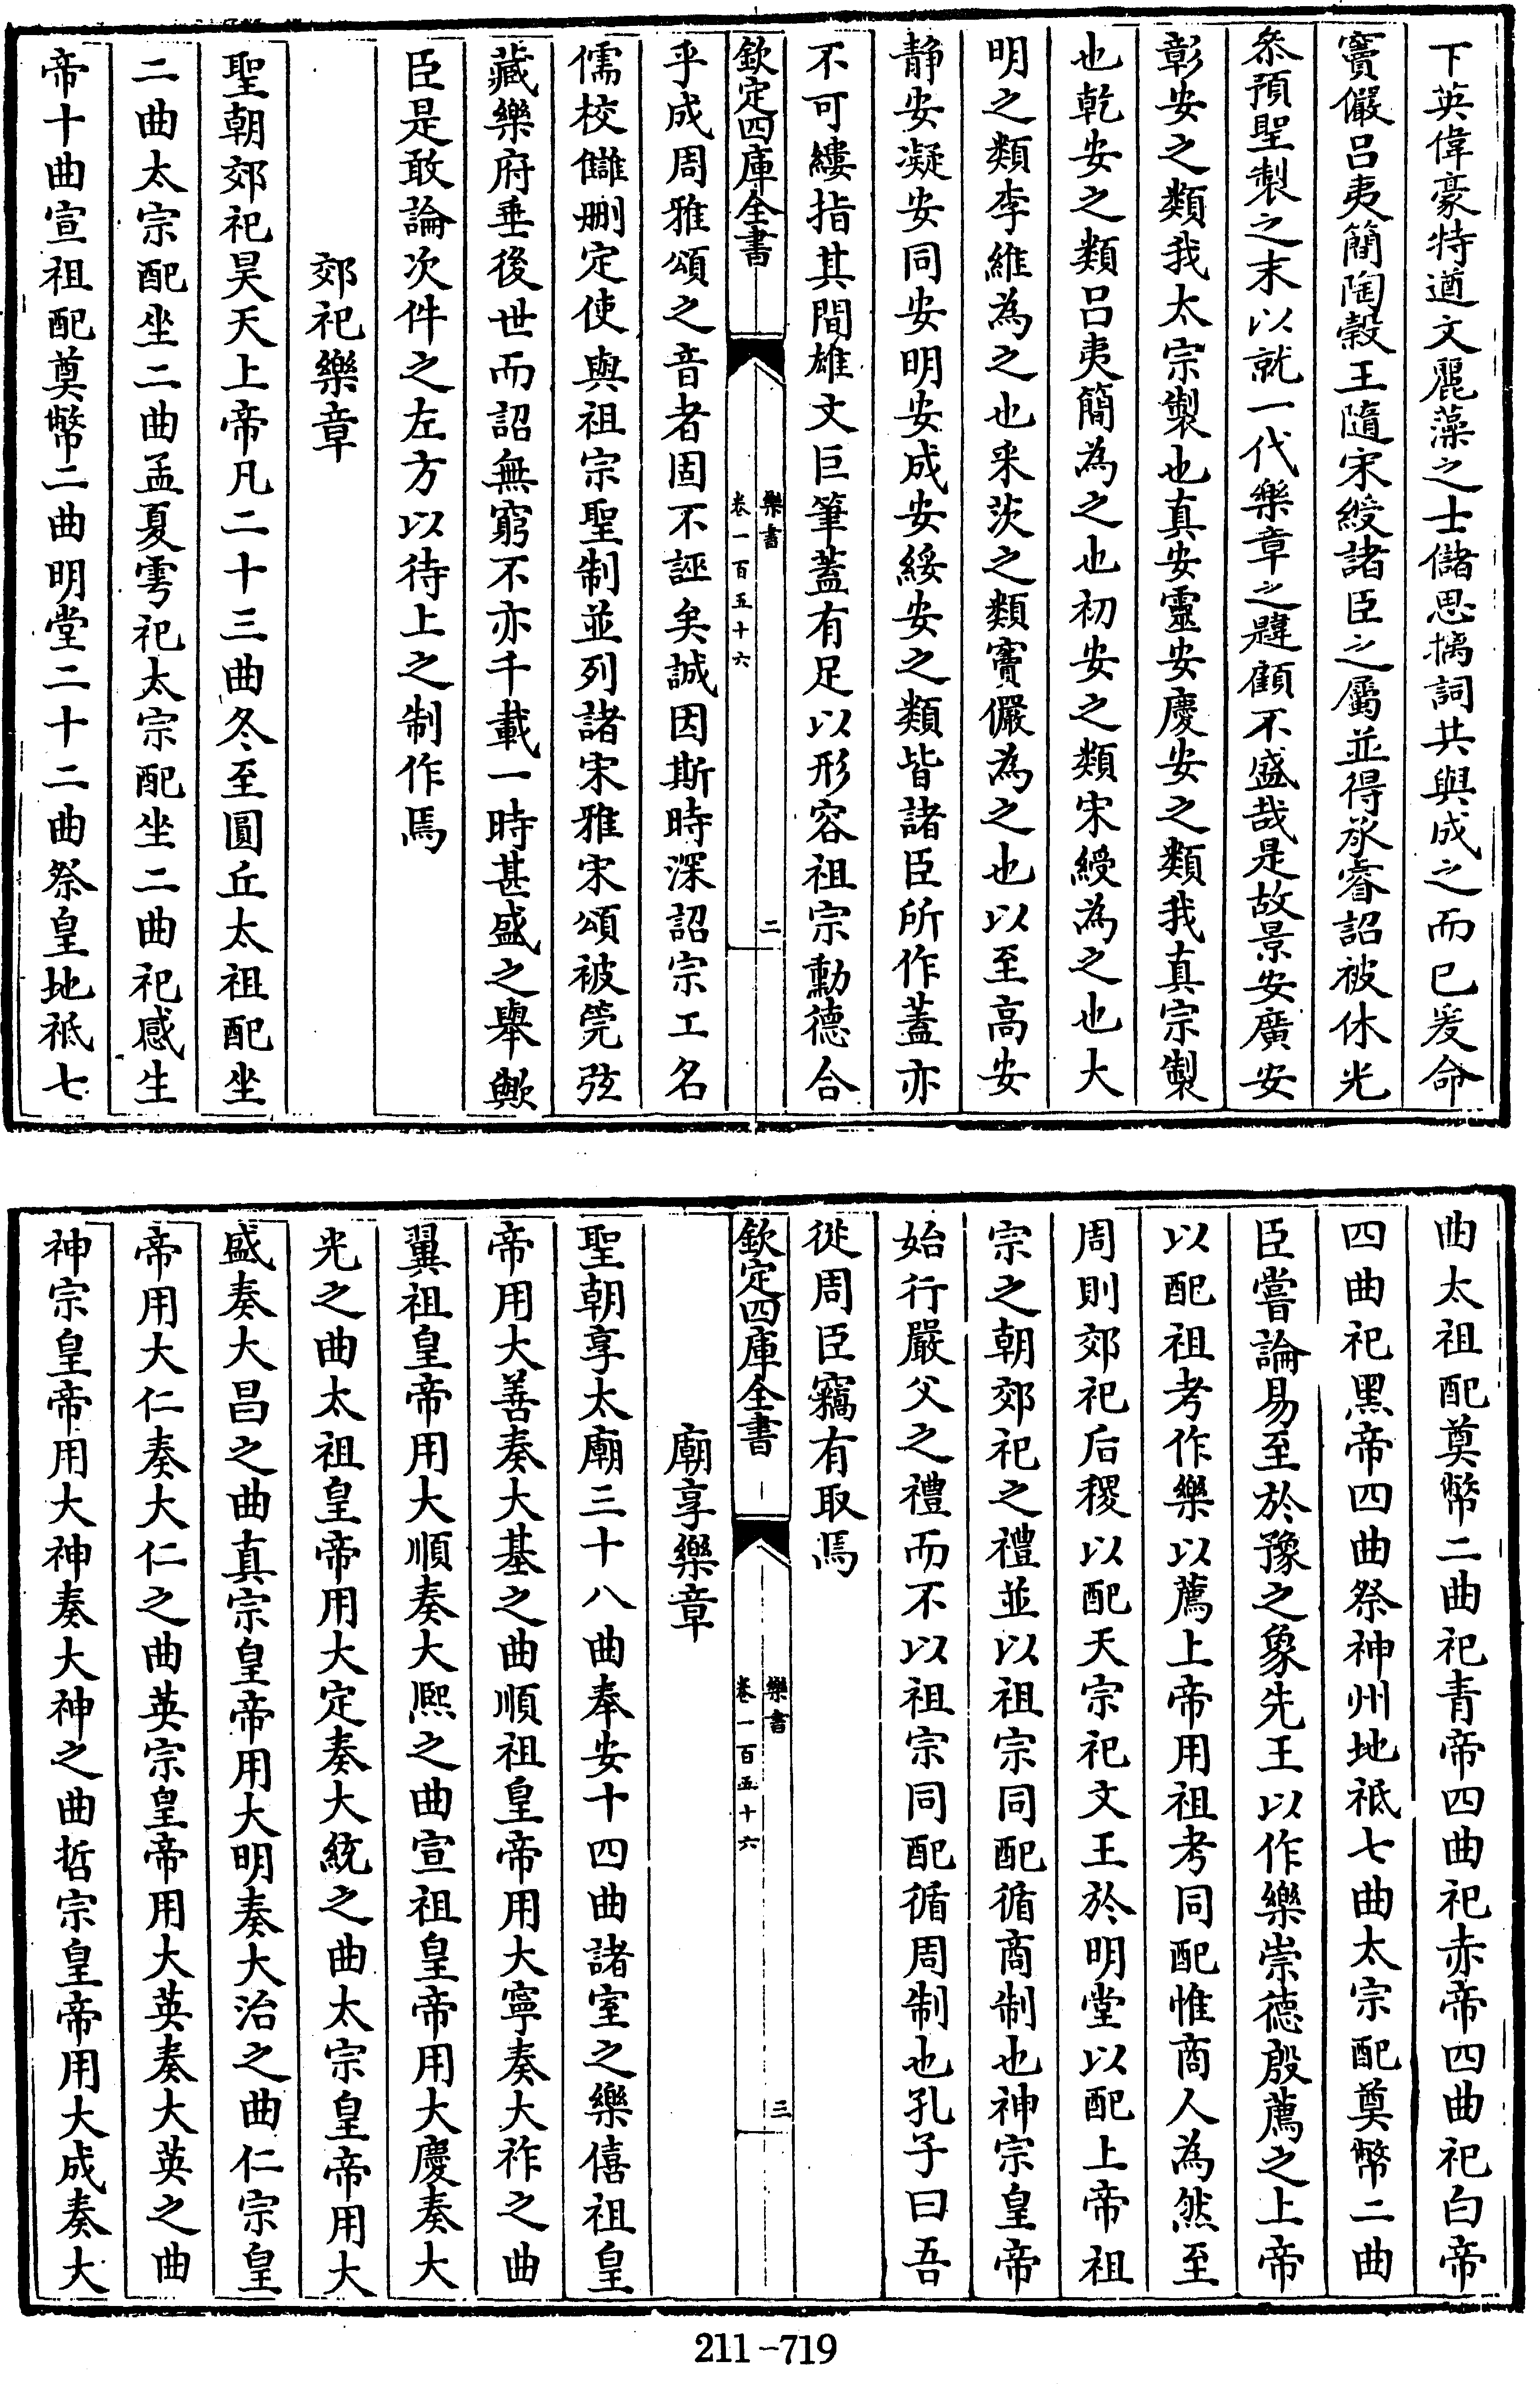 下英偉豪特遒文麗藻之士儲思摛詞共與成之而已爰命
竇儼呂夷簡陶穀王隨宋綬諸臣之屬並得承睿詔被休光
叅預聖製之末以就一代樂章之韙顧不盛哉是故景安廣安
彰安之類我太宗製也真安靈安慶安之類我真宗製
也乾安之類呂夷簡為之也初安之類宋綬為之也大
明之類李維為之也采茨之類竇儼為之也以至高安
静安凝安同安明安成安綏安之類皆諸臣所作蓋亦
不可縷指其間雄文巨筆蓋有足以形容祖宗勳德合
欽定四庫全書
樂書
卷一百五十六
二
乎成周雅頌之音者固不誣矣誠因斯時深詔宗工名
儒校讎刪定使與祖宗聖制並列諸宋雅宋頌被筦弦
藏樂府垂後世而詔無窮不亦千載一時甚盛之舉歟
臣是敢論次件之左方以待上之制作焉
郊祀樂章
聖朝郊祀昊天上帝凡二十三曲冬至圓丘太祖配坐
二曲太宗配坐二曲孟夏雩祀太宗配坐二曲祀感生
帝十曲宣祖配奠幣二曲明堂二十二曲祭皇地祇七
曲太祖配奠幣二曲祀青帝四曲祀赤帝四曲祀白帝
四曲祀黑帝四曲祭神州地祇七曲太宗配奠幣二曲
臣嘗論易至於豫之象先王以作樂崇德殷薦之上帝
以配祖考作樂以薦上帝用祖考同配惟商人為然至
周則郊祀后稷以配天宗祀文王於明堂以配上帝祖
宗之朝郊祀之禮並以祖宗同配循商制也神宗皇帝
始行嚴父之禮而不以祖宗同配循周制也孔子曰吾
從周臣竊有取焉
欽定四庫全書
樂書
卷一百五十六
三
廟享樂章
聖朝享太廟三十八曲奉安十四曲諸室之樂僖祖皇
帝用大善奏大基之曲順祖皇帝用大寧奏大祚之曲
翼祖皇帝用大順奏大熙之曲宣祖皇帝用大慶奏大
光之曲太祖皇帝用大定奏大統之曲太宗皇帝用大
盛奏大昌之曲真宗皇帝用大明奏大治之曲仁宗皇
帝用大仁奏大仁之曲英宗皇帝用大英奏大英之曲
神宗皇帝用大神奏大神之曲哲宗皇帝用大成奏大
211-719